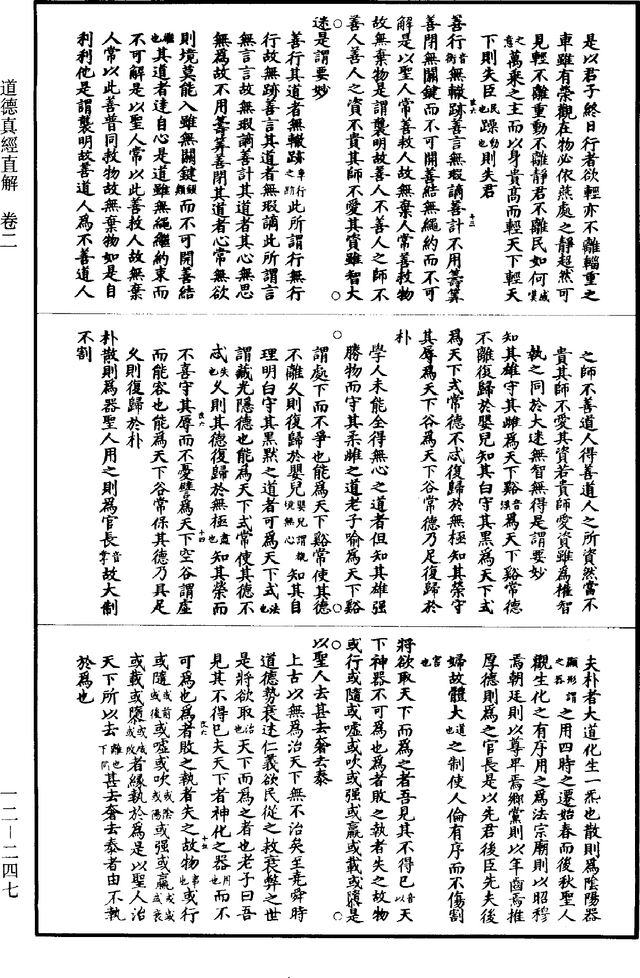 道德真經直解 卷二
一二—二四七
是以君子終日行者欲輕亦不離輜重之
車雖有榮觀在物必依燕處之靜超然可
見輕不離重動不離靜君不離民如何或嘆之意
萬乘之主而以身貴高而輕天下輕天
下則失臣民也躁動也則失君
善行音衡無轍跡善言無瑕讁善計不用籌筭
善閉無關鍵而不可開善結無繩約而不可
解是以聖人常善救人故無棄人常善救物
故無棄物是謂襲明故善人不善人之師不
善人善人之資不貴其師不愛其資雖智大
迷是謂要妙
善行其道者無轍跡車行之跡此所謂行無行
行故無跡善言其道者無瑕讁此所謂言
無言言故無瑕讁善計其道者其心無思
無爲故不用籌筭善閉其道者心常無欲
則境莫能入雖無關鍵鎖類而不可開善結
其道者達自心是道雖無繩繼約束而
不可解是以聖人常以此善救人故無棄
人常以此善普同救物故無棄物如是自
利利他是謂襲明故善道人爲不善道人
之師不善道人得善道人之所資然當不
貴其師不愛其資若貴師愛資雖爲權智
執之同於大迷無智無得是謂要妙
知其雄守其雌爲天下谿音溪爲天下谿常德
不離復歸於嬰兒知其白守其黑爲天下式
爲天下式常德不忒復歸於無極知其榮守
其辱爲天下谷爲天下谷常德乃足復歸於
朴
學人未能全得無心之道者但知其雄强
勝物而守其柔雌之道老子喻爲天下谿
謂處下而不爭也能爲天下谿常使其德
不離久則復歸於嬰兒嬰兒謂境無心知其自
理明白守其黑默之道者可爲天下式法也
謂藏光隱德也能爲天下式常使其德不
忒失也久則其德復歸於無極盡也知其榮而
不喜守其辱而不憂譬爲天下空谷謂虛
而能容也能爲天下谷常保其德乃具足
久則復歸於朴
朴散則爲器聖人用之則爲官長音掌故大制
不割
夫朴者大道化生一炁也散則爲陰陽器
顯形謂之器之用四時之遷始春而後秋聖人
觀生化之有序用之爲法宗廟則以昭穆
焉朝廷則以尊卑焉鄉黨則以年齒焉推
厚德則爲之官長是以先君後臣先夫後
婦故體大道也之制使人倫有序而不傷割
害也
將欲取天下而爲之者吾見其不得已音以天
下神器不可爲也爲者敗之執者失之故物
或行或隨或噓或吹或强或羸或載或隳是
以聖人去甚去奢去泰
上古以無爲治天下無不治矣至堯舜時
道德勢衰迷仁義欲民從之救衰弊之世
是將欲取治也天下而爲之者也老子曰吾
見其不得已夫天下者神化之器用也而不
可爲也爲者敗之執者失之故物事也或行
或隨或前或後或噓或吹或陰或陽或强或羸或盛或衰
或載或隳或成或敗者緣執於爲是以聖人治
天下所以去離也下同甚去奢去泰者由不執
於爲也